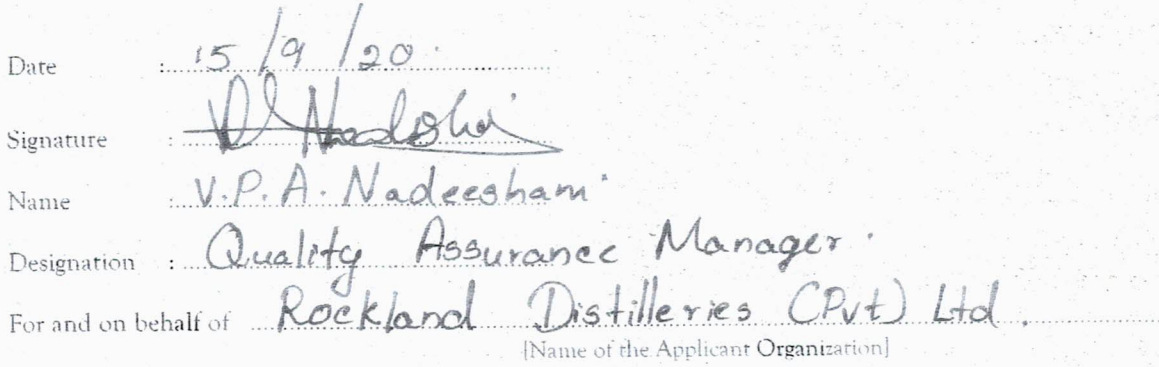 Date : 15/9/20.
Signature :
Name : V.P.A. Nadeeshani
Designation : Quality Assurance Manager.
For and on behalf of Rockland Distilleries (Pvt) Ltd.
[Name of the Applicant Organization]